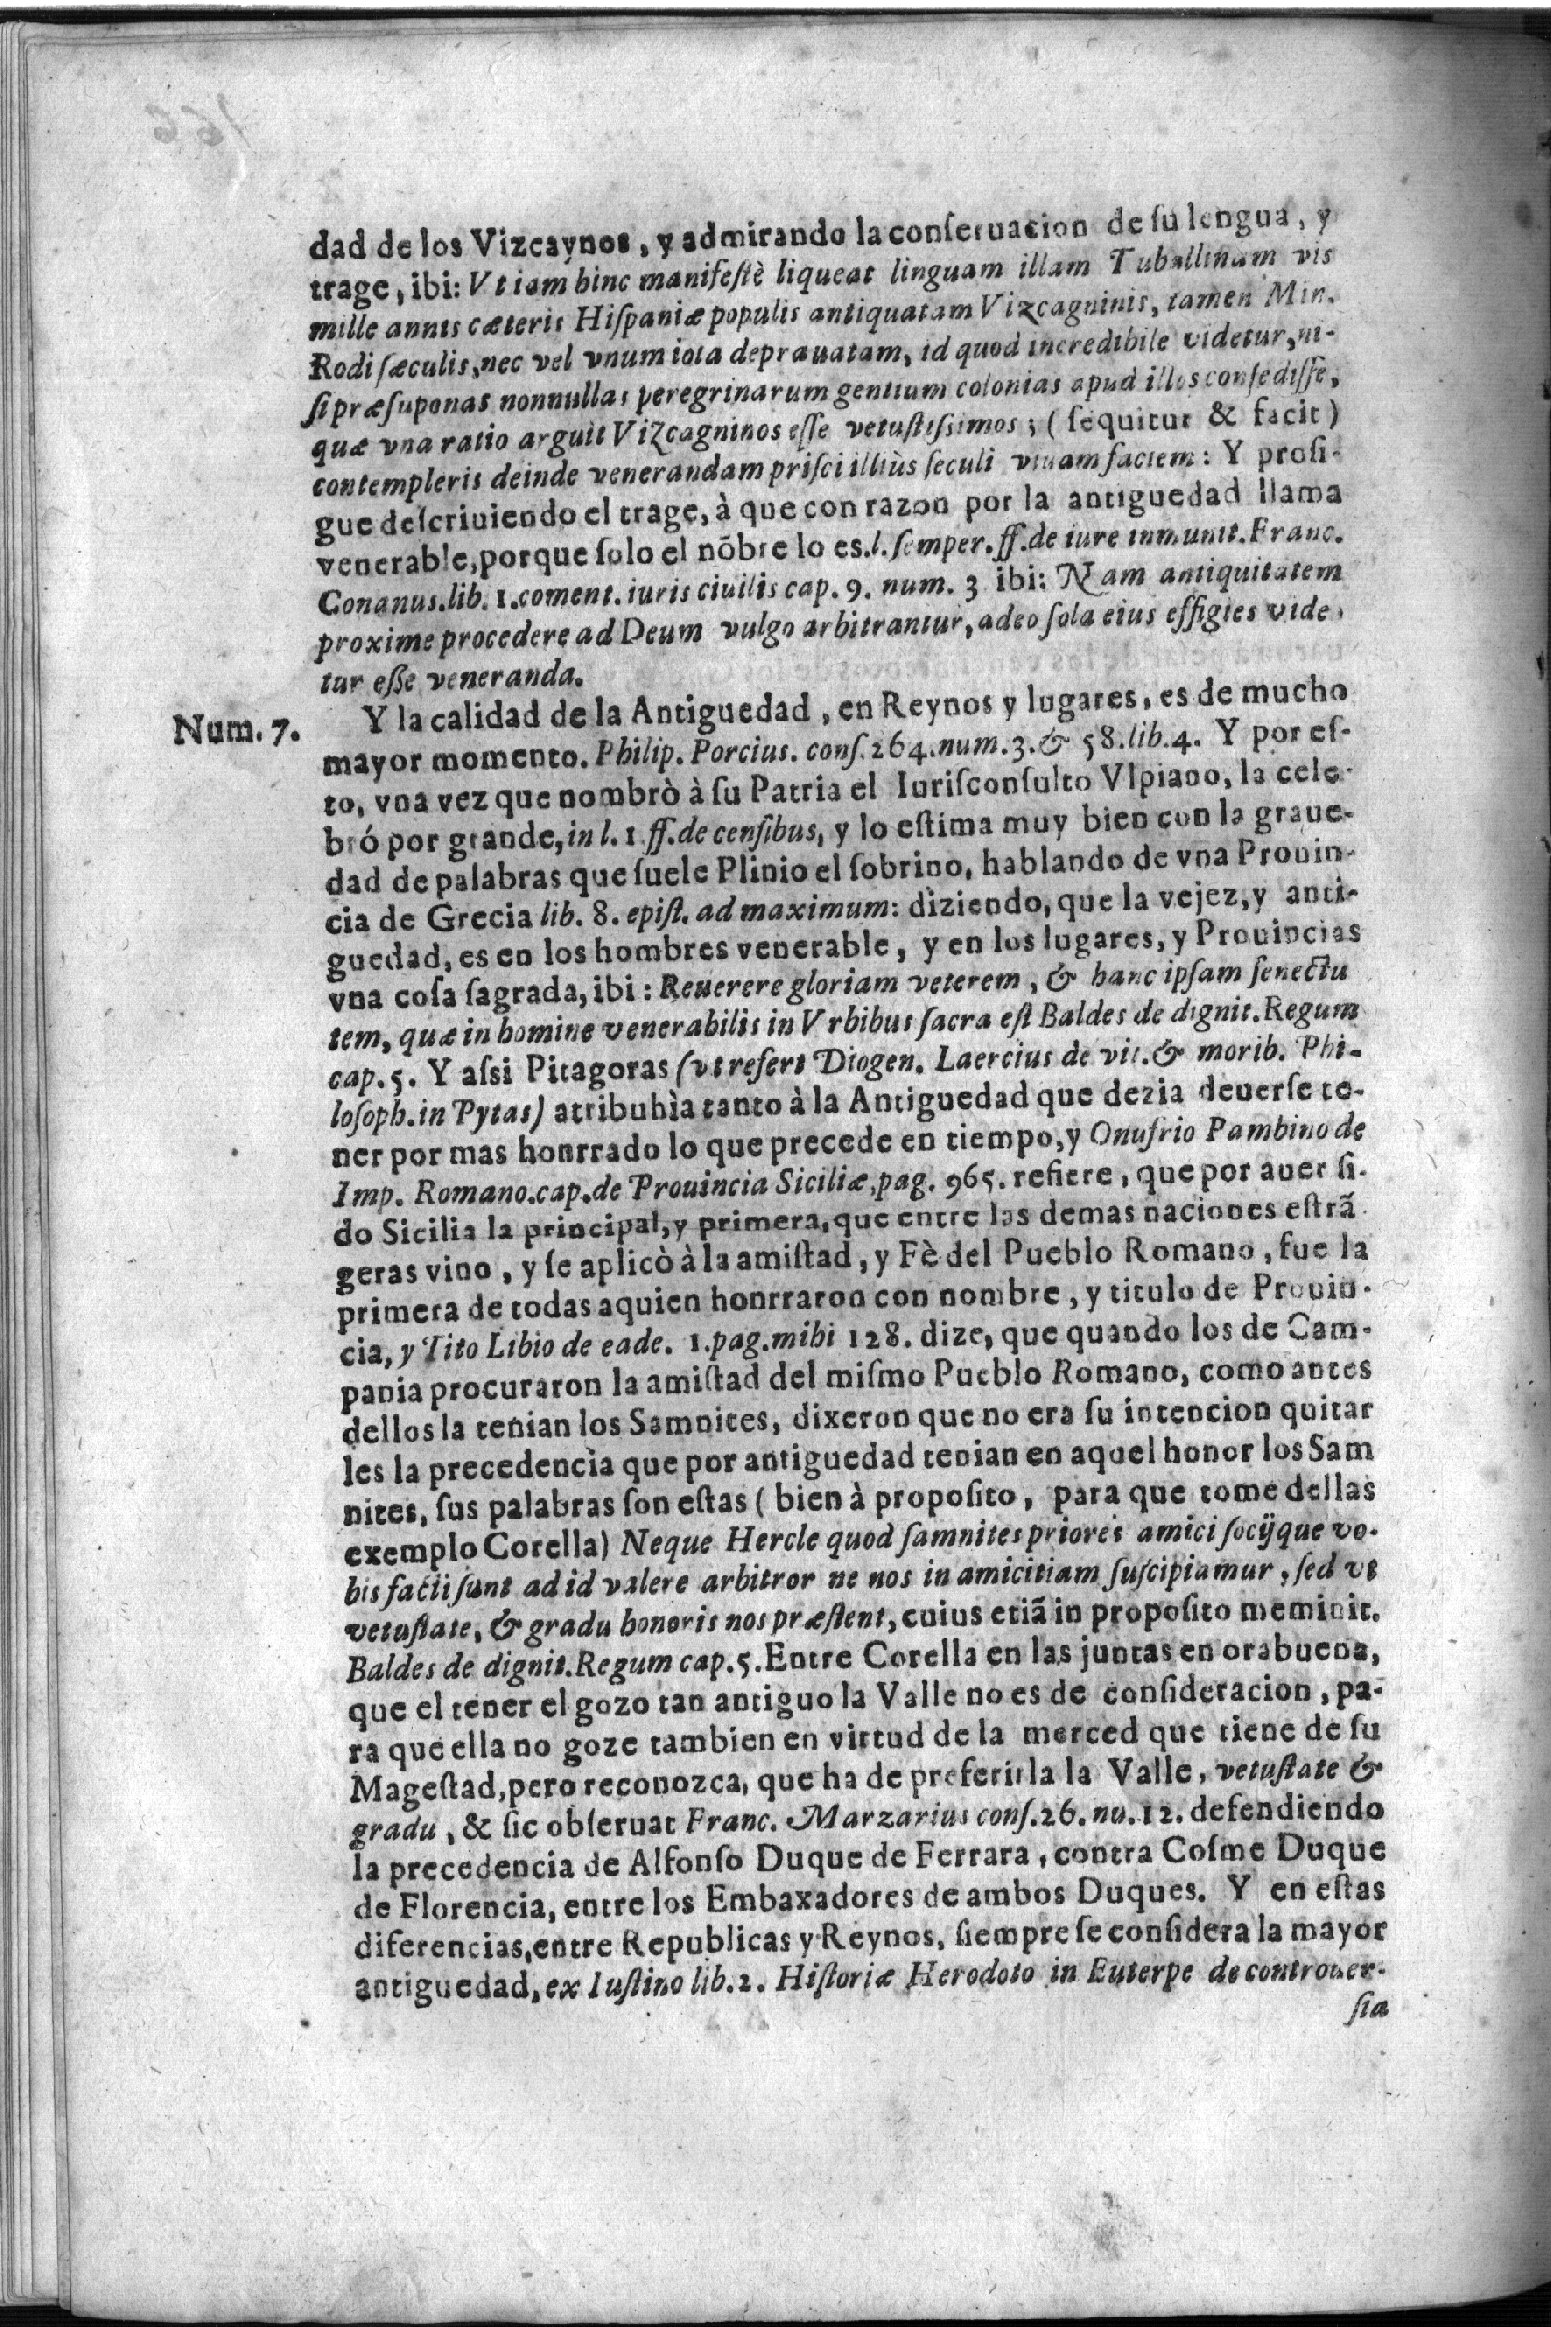 dad de los Vizcaynos, y admirando la conseruacion de su lengua, y
trage, ibi: Vt iam hinc manifestè liqueat linguam illam Tuballinam vis
mille annis cæteris Hispaniæ populis antiquatam Vizcagninis, tamen Min.
Rodi sæculis, nec vel vnum iota deprauatam, id quod incredibile videtur, ni-
si præsuponas nonnullas peregrinarum gentium colonias apud illos consedisse,
quæ vna ratio arguit Vizcagninos esse vetustissimos; (sequitur & facit)
contempleris deinde venerandam prisci illiùs seculi viuam faciem: Y prosi-
gue descriuiendo el trage, à que con razon por la antiguedad llama
venerable, porque solo el nõbre lo es. l. semper. ff. de iure inmunit. Franc.
Conanus. lib. 1. coment. iuris ciuilis cap. 9. num. 3 ibi: Nam antiquitatem
proxime procedere ad Deum vulgo arbitrantur, adeo sola eius effigies vide.
tur esse veneranda.
Num. 7. Y la calidad de la Antiguedad, en Reynos y lugares, es de mucho
mayor momento. Philip. Porcius. cons. 264. num. 3. & 58. lib. 4. Y por es-
to, vna vez que nombrò à su Patria el Iurisconsulto Vlpiano, la cele-
bró por grande, in l. 1. ff. de censibus, y lo estima muy bien con la graue-
dad de palabras que suele Plinio el sobrino, hablando de vna Prouin-
cia de Grecia lib. 8. epist. ad maximum: diziendo, que la vejez, y anti-
guedad, es en los hombres venerable, y en los lugares, y Prouincias
vna cosa sagrada, ibi: Reuerere gloriam veterem, & hanc ipsam senectu
tem, quæ in homine venerabilis in Vrbibus sacra est Baldes de dignit. Regum
cap. 5. Y assi Pitagoras (vt refert Diogen. Laercius de vit. & morib. Phi-
losoph. in Pytas) atribuhìa tanto à la Antiguedad que dezia deuerse te-
ner por mas honrrado lo que precede en tiempo, y Onufrio Pambino de
Imp. Romano. cap. de Prouincia Siciliæ, pag. 965. refiere, que por auer si-
do Sicilia la principal, y primera, que entre las demas naciones estrã-
geras vino, y se aplicò à la amistad, y Fè del Pueblo Romano, fue la
primera de todas aquien honrraron con nombre, y titulo de Prouin-
cia, y Tito Libio de eade. 1. pag. mihi 128. dize, que quando los de Cam-
pania procuraron la amistad del mismo Pueblo Romano, como antes
dellos la tenian los Samnites, dixeron que no era su intencion quitar
les la precedencia que por antiguedad tenian en aquel honor los Sam
nites, sus palabras son estas (bien à proposito, para que tome dellas
exemplo Corella) Neque Hercle quod samnites priores amici socijque vo-
bis facti sunt ad id valere arbitror ne nos in amicitiam suscipiamur, sed vt
vetustate, & gradu honoris nos præstent, cuius etiã in proposito meminit.
Baldes de dignit. Regum cap. 5. Entre Corella en las juntas en orabuena,
que el tener el gozo tan antiguo la Valle no es de consideracion, pa-
ra que ella no goze tambien en virtud de la merced que tiene de su
Magestad, pero reconozca, que ha de preferirla la Valle, vetustate &
gradu, & sic obseruat Franc. Marzarius cons. 26. nu. 12. defendiendo
la precedencia de Alfonso Duque de Ferrara, contra Cosme Duque
de Florencia, entre los Embaxadores de ambos Duques. Y en estas
diferencias, entre Republicas y Reynos, siempre se considera la mayor
antiguedad, ex Iustino lib. 2. Historiæ Herodoto in Euterpe de controuer-
sia